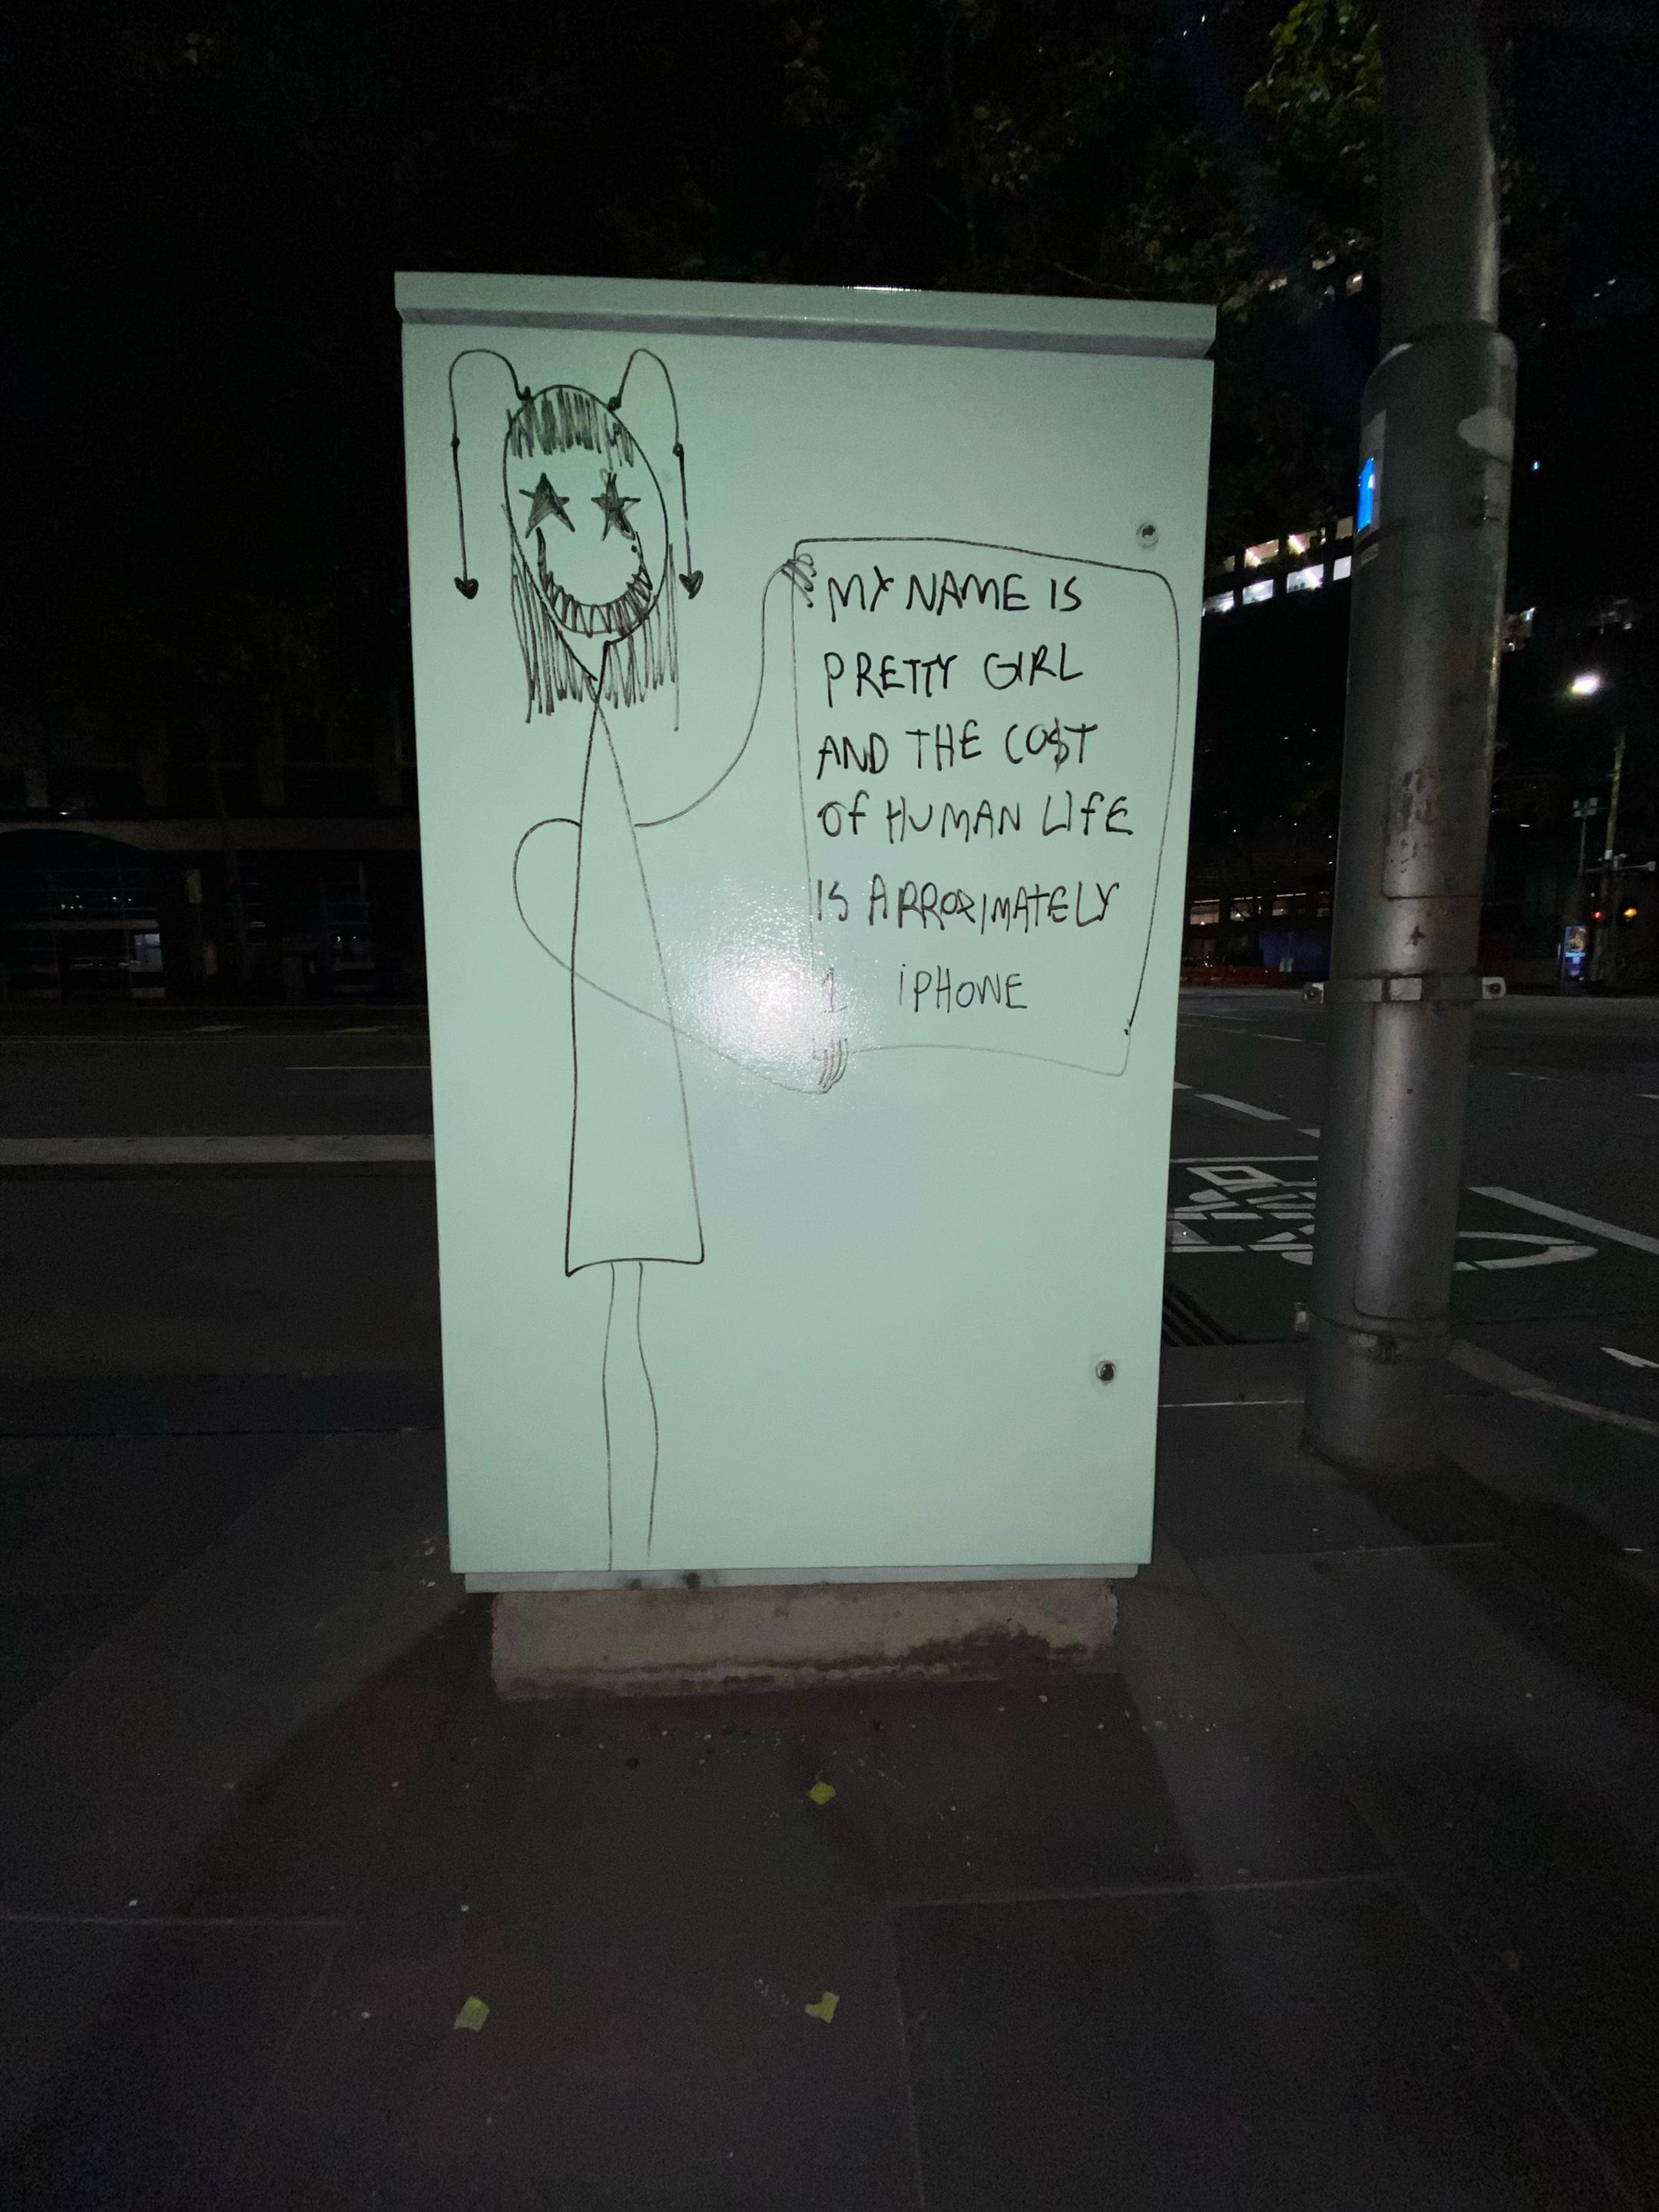 MY NAME IS
PRETTY GIRL
AND THE CO$T
OF HUMAN LIFE
IS APPROXIMATELY
1 iPHONE